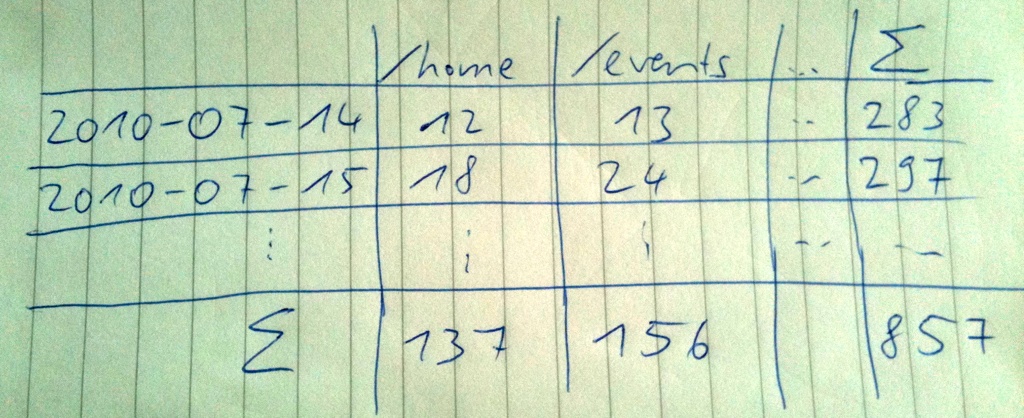 /home /events ... Σ
2010-07-14 12 13 .. 283
2010-07-15 18 24 .. 297
⋮ ⋮ ⋮ .. ...
Σ 137 156 857